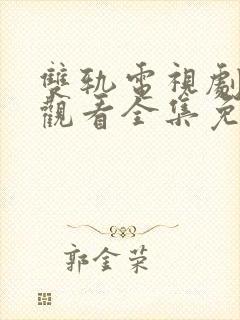 雙軌電視劇
觀看全集免
郭金荣